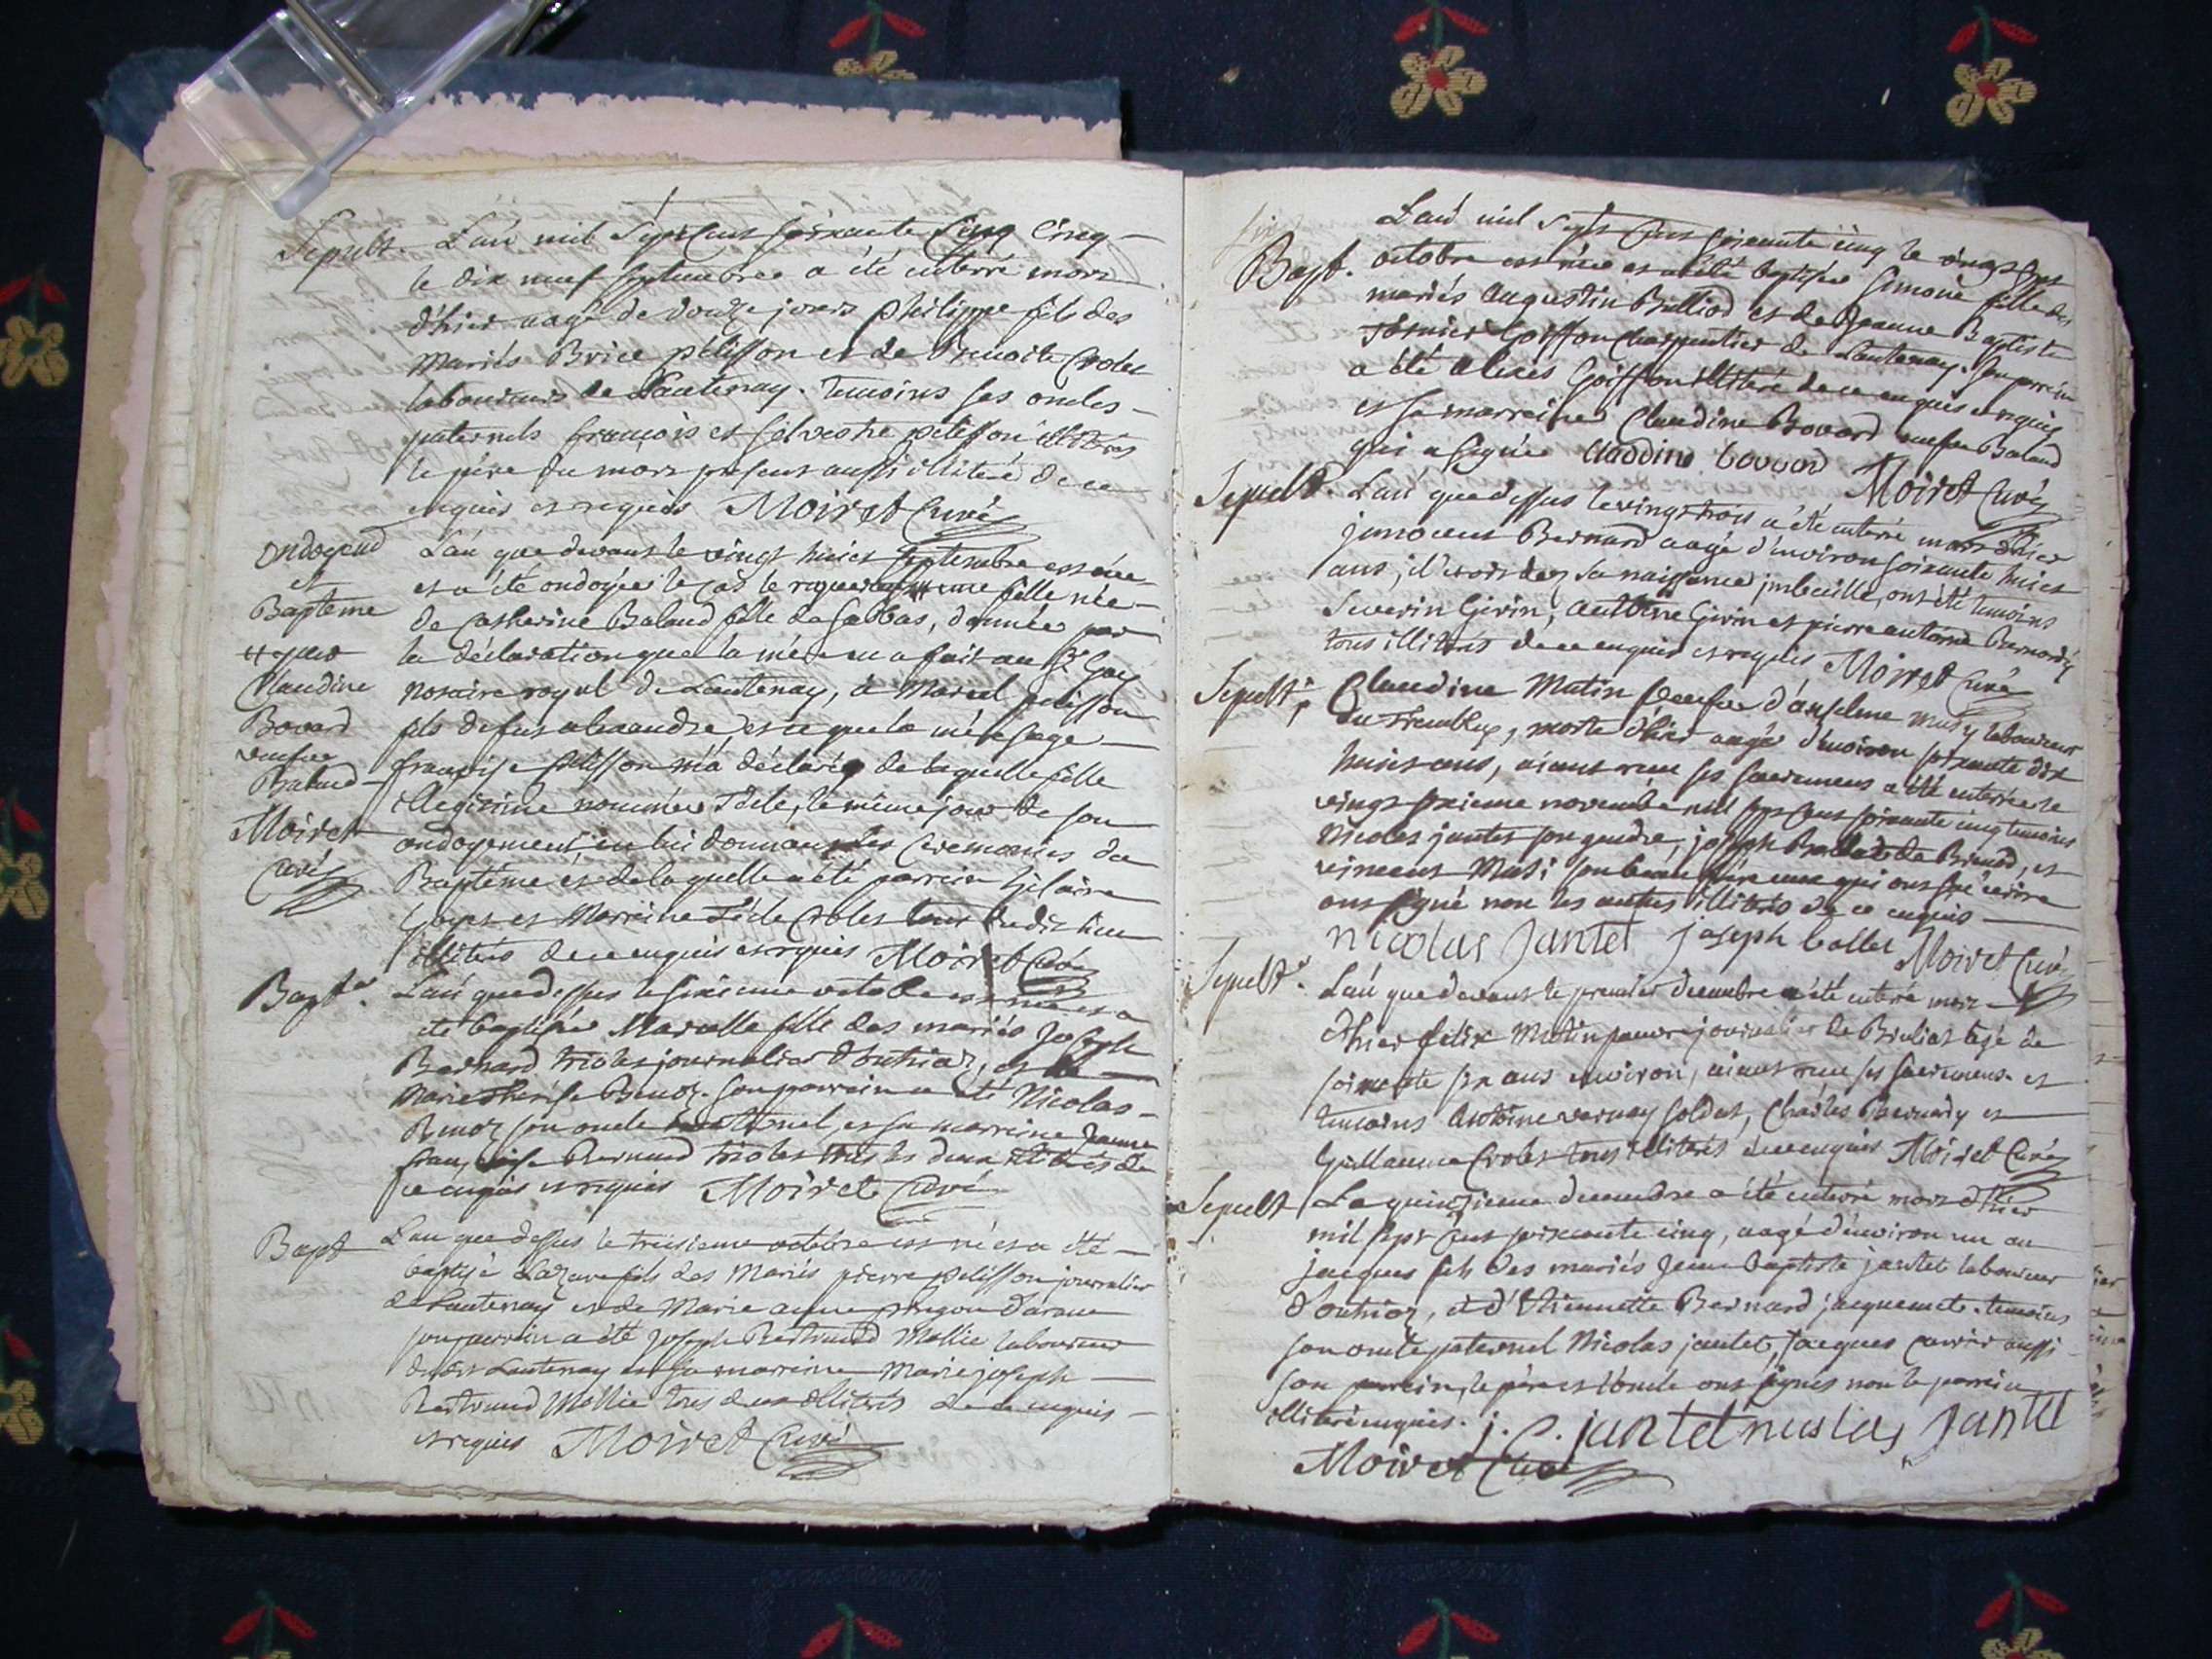 Sepult. L'an mil Sept Cens soixante Cinq Cinq
le dix neuf septembre a été enterré mort
d'hier aagé de douze jours philippe fils des
mariés Brice pélisson et de Benoite Crolet
laboureurs de Lantenay. temoins ses oncles
paternels françois et Silvestre pelisson illitérés
le père du mort present aussi illitéré de ce
enquis et requis Moiret Curé
Ondoyend
et
Baptême
# par
Claudine
Bovard
veufve
Balaud
Moiret
Curé
L'an que devant le vingt huict septembre est née
et a été ondoyée le cas le requerant # une fille née
de Catherine Baland fille de Sabbas, donnée par
la déclaration que la mère en a fait au Sr Guy
notaire royal de Lantenay, à Marcel pelisson
fils de feu alexandre et ce que la mère sage
françoise pélisson m'a déclaré de laquelle fille
illegitime nommée Tècle, le même jour de son
ondoyement en lui donnant les Ceremonies du
Baptême et de laquelle a été parrein hilaire
et Marreine Tècle Crolet tous dudit lieu
illitérés de ce enquis et requis Moiret Curé
Bapt. L'an que dessus le sixieme octobre est née et a
été baptisée Marcelle fille des mariés Joseph
Bernard triolet journalier d'outriaz, et de
Marie therese Benoz. son parrein a été Nicolas
Benoz son oncle maternel, et sa marreine Jeanne
françoise Bernard triolet tous les deux illitérés de
ce enquis et requis Moiret Curé
Bapt L'an que dessus le treisieme octobre est né et a été
baptisé Lazare fils des Mariés pierre pelisson journalier
de Lantenay et de Marie anne pingon d'arane
son parrein a été Joseph Bertrand Mollie laboureur
dudit Lantenay et sa marreine Marie joseph
Bertrand Mollie tous deux illitérés de ce enquis
et requis Moiret Curé
L'an mil Sept Cens soixante cinq le vingt sept
Bapt. octobre est née et a été baptisée Simone fille des
mariés augustin Bulliod et de Jeanne Baptiste
Tornier Goiffon charpentier de Lantenay. Son parrein
a été alexis Goiffon illitéré de ce enquis et requis
et sa marreine Claudine Bovard veufve Balaud
qui a signée claudine bovard Moiret Curé
Sepult. L'an que dessus le vingt trois a été enterré mort d'hier
jnnocent Bernard aagé d'environ soixante huict
ans, il étoit dez sa naissance jmbecille, ont été temoins
Severin Girin, antoine Girin et pierre antoine Bernardy
tous illitérés de ce enquis et requis Moiret Curé
Sepult. Claudine Matin veufve d'anselme musy laboureur
du tremblay, morte d'hier aagée d'environ soixante dix
huict ans, aiant reçu ses sacremens a été enterrée le
vingt sixieme novembre mil sept cens soixante cinq temoins
Nicolas jantet son gendre, joseph Ballet de Brenod, et
vincent Musi son beau frère ceux qui ont sçu écrire
ont signé non les autres illitérés de ce enquis
nicolas Jantet joseph ballet Moiret Curé
Sepult. L'an que devant le premier decembre a été enterré mort
d'hier felix Matin pauvre journalier de Bruliat agé de
soixante six ans environ, aiant reçu ses sacremens et
temoins antoine vernay soldat, Charles Bernardy et
Guillaume Crolet tous illitérés de ce enquis Moiret Curé
Sepult Le quinzieme decembre a été enterré mort d'hier
mil sept cens soixante cinq, aagé d'environ un an
jacques fils des mariés Jean baptiste jantet laboureur
d'outriaz, et d'Etiennette Bernard jacquemet. temoins
son oncle paternel Nicolas jantet, Jacques carrier aussi
son parrein, le père et l'oncle ont signés non le parrein
illitéré enquis. j. b. jantet nicolas Jantet
Moiret Curé